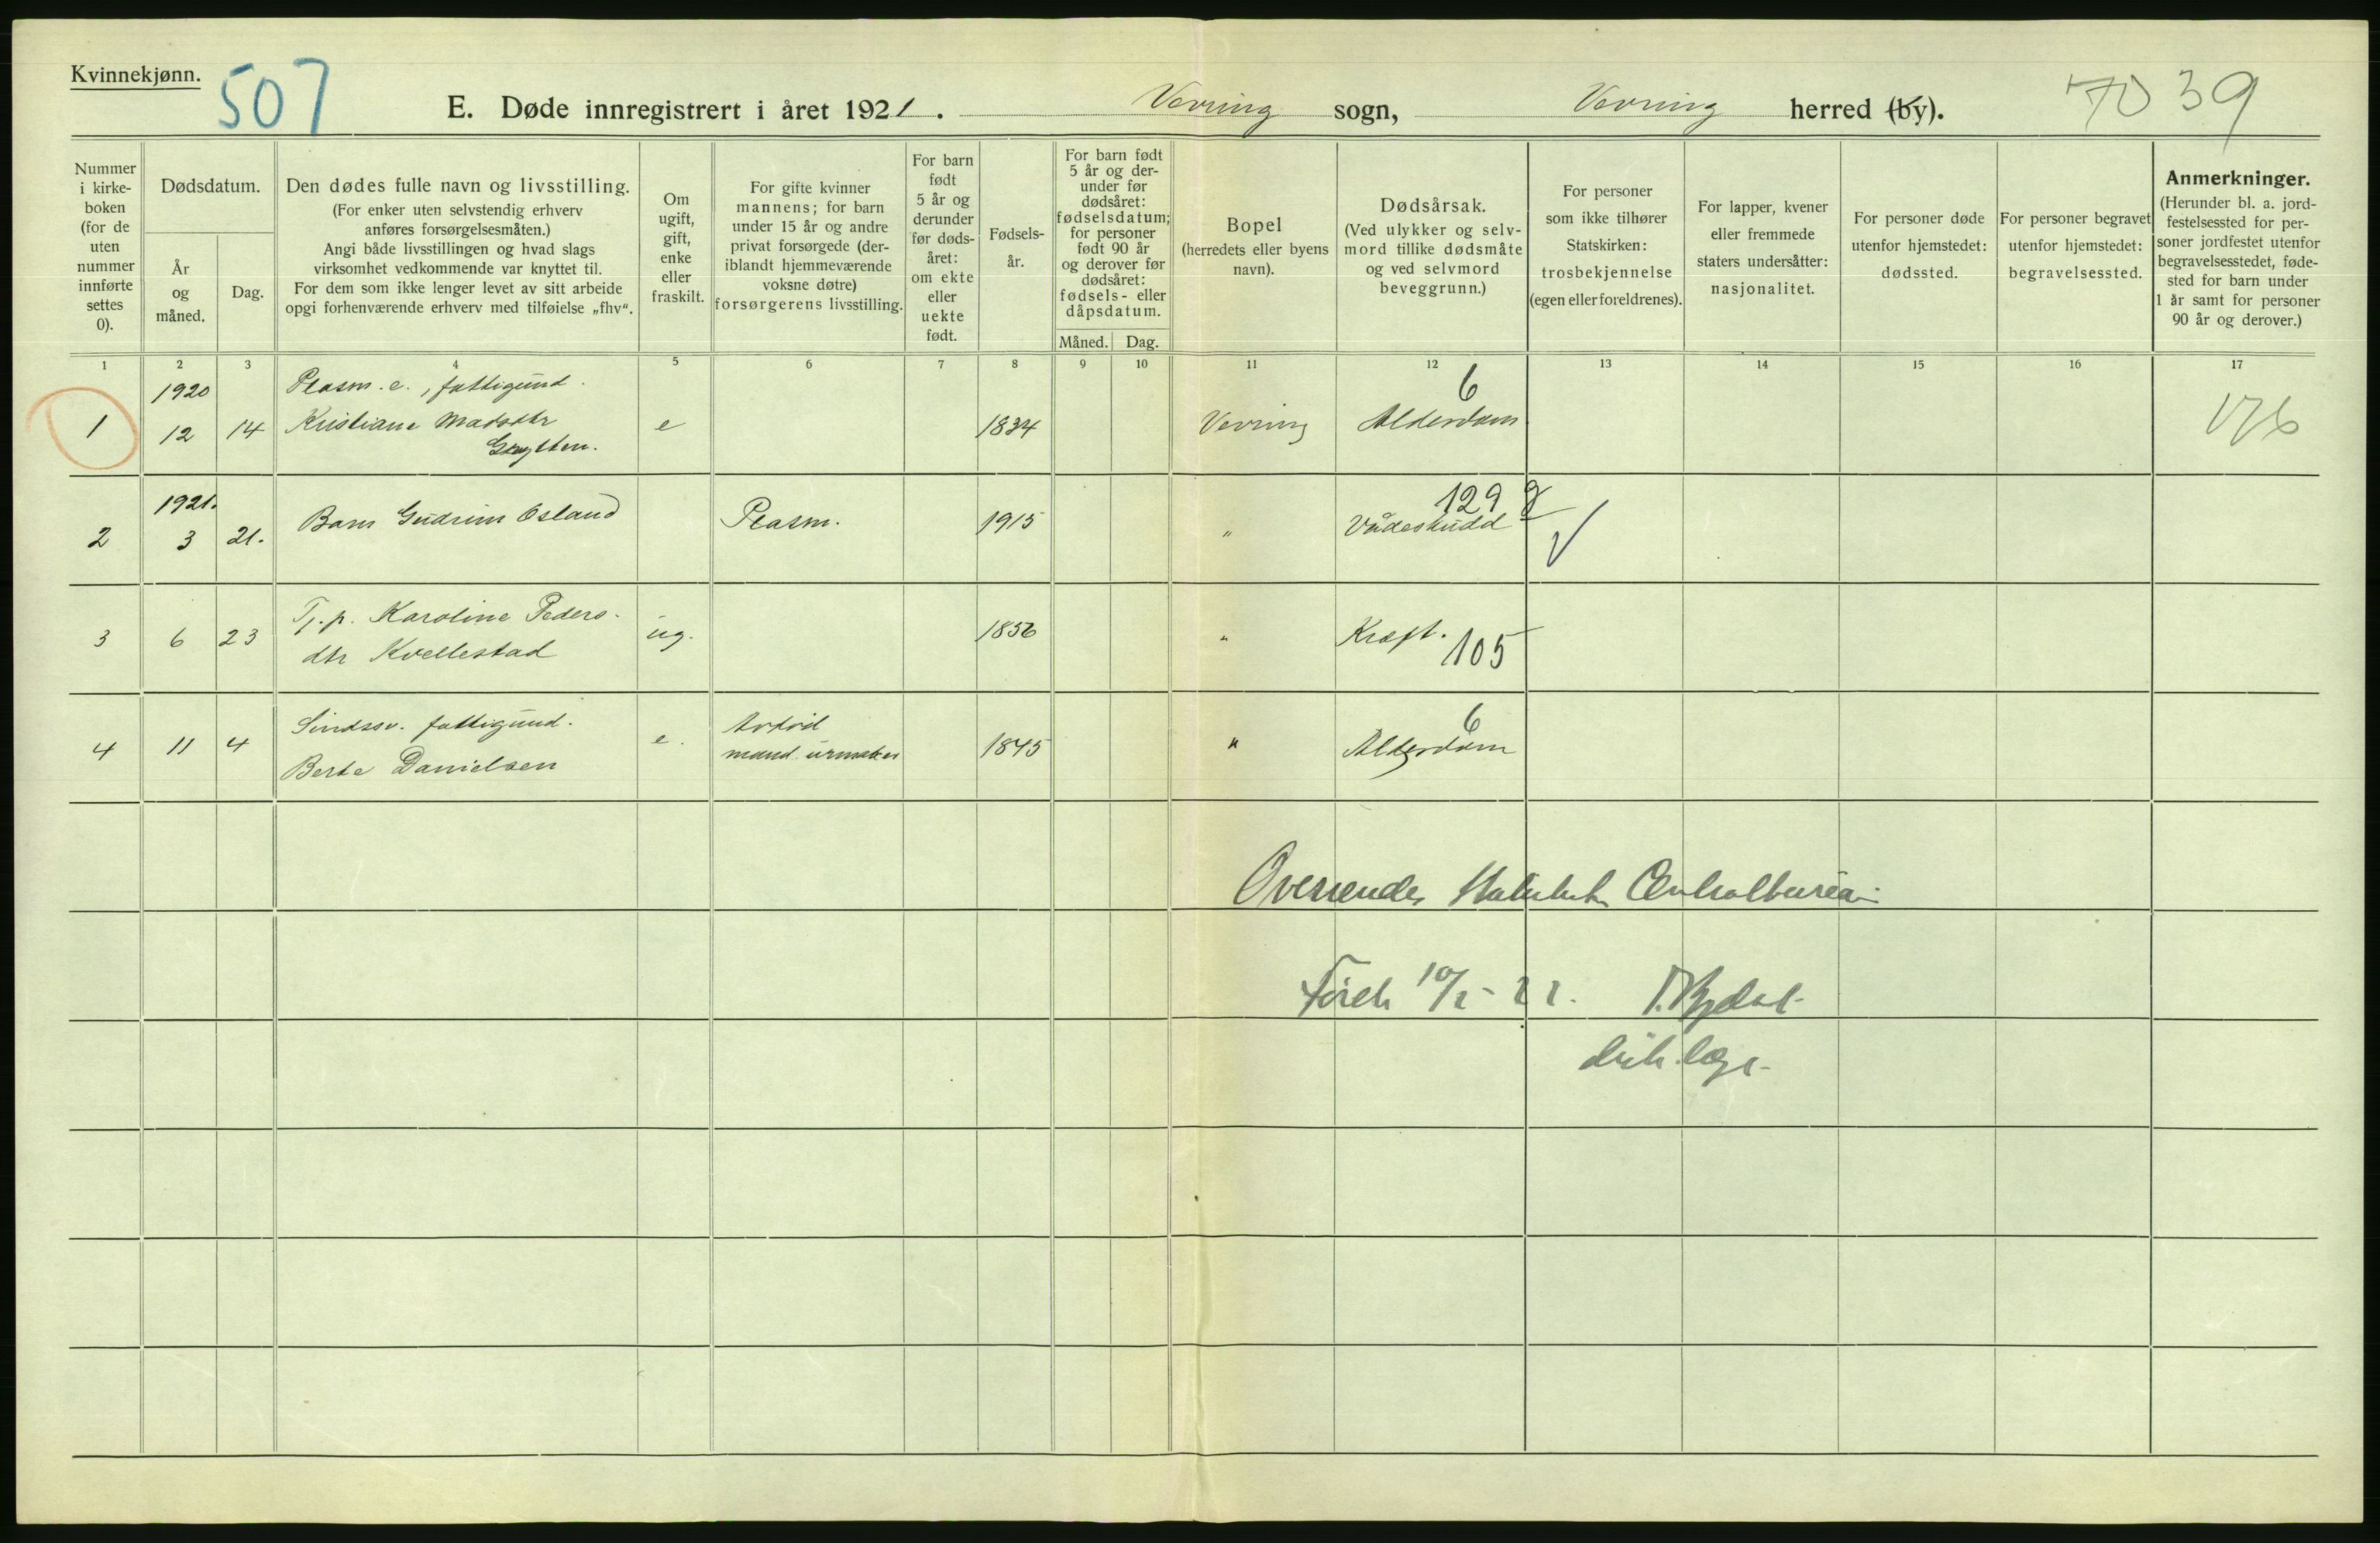 Kvinnekjønn.
507
E. Døde innregistrert i året 1921. Vevring sogn, Vevring herred (by).
70 39
Nummer i kirke- boken (for de uten nummer innførte settes 0).
Dødsdatum.
År og måned.
Dag.
Den dødes fulle navn og livsstilling.
(For enker uten selvstendig erhverv
anføres forsørgelsesmåten.)
Angi både livsstillingen og hvad slags
virksomhet vedkommende var knyttet til.
For dem som ikke lenger levet av sitt arbeide
opgi forhenværende erhverv med tilføielse „fhv“.
Om ugift, gift, enke eller fraskilt.
For gifte kvinner
mannens; for barn
under 15 år og andre
privat forsørgede (der-
iblandt hjemmeværende
voksne døtre)
forsørgerens livsstilling.
For barn født 5 år og derunder før døds- året: om ekte eller uekte født.
Fødsels- år.
For barn født
5 år og der-
under før
dødsåret:
fødselsdatum;
for personer
født 90 år
og derover før
dødsåret:
fødsels- eller
dåpsdatum.
Måned. Dag.
Bopel
(herredets eller byens
navn).
Dødsårsak.
(Ved ulykker og selv-
mord tillike dødsmåte
og ved selvmord
beveggrunn.)
For personer
som ikke tilhører
Statskirken:
trosbekjennelse
(egen eller foreldrenes).
For lapper, kvener
eller fremmede
staters undersåtter:
nasjonalitet.
For personer døde
utenfor hjemstedet:
dødssted.
For personer begravet
utenfor hjemstedet:
begravelsessted.
Anmerkninger.
(Herunder bl. a. jord-
festelsessted for per-
soner jordfestet utenfor
begravelsesstedet, føde-
sted for barn under
1 år samt for personer
90 år og derover.)
1 2 3 4 5 6 7 8 9 10 11 12 13 14 15 16 17
1920 Plasm. e., fattigund. 6
1 12 14 Kristiane Madsdtr e 1834 Vevring Alderdom 176
1921. 129 g
2 3 21. Barn Gudrun Osland Plasm. 1915 " Vådeskudd
Tj.p. Karoline Peders-
3 6 23 dtr Kvellestad ug. 1856 " Kræft. 105
Sindssv. fattigund. 6
4 11 4 Berte Danielsen e. mand urmaker 1845 " Alderdom
Oversendes Statistisk Centralbureau
Förde